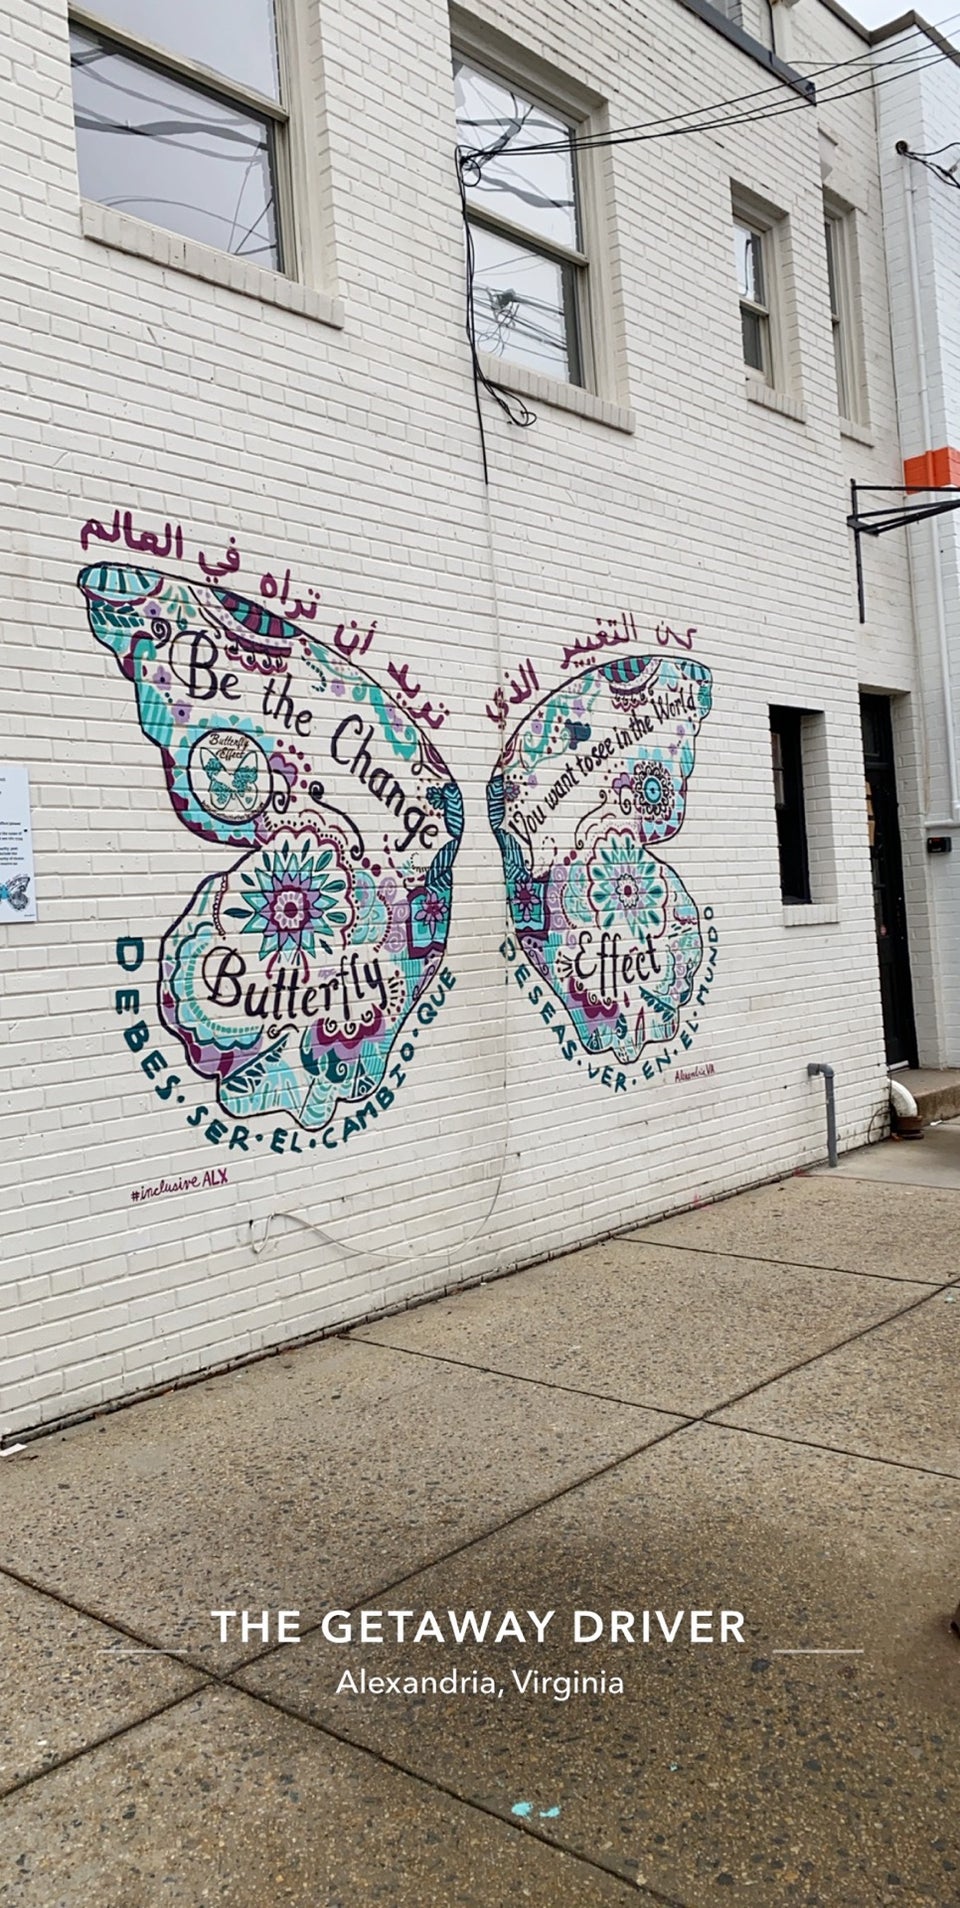 كن التغيير الذي
تريد أن تراه في العالم
Be the Change
You want to see in the World
Butterfly
Effect
Butterfly
Effect
DEBES·SER·EL·CAMBIO·QUE
DESEAS·VER·EN·EL·MUNDO
Alexandria, VA
#inclusiveALX
THE GETAWAY DRIVER
Alexandria, Virginia